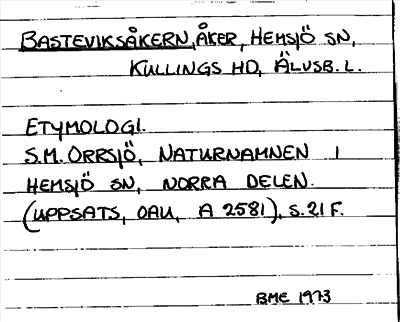 BASTEVIKSÅKERN, ÅKER, HEMSJÖ SN,
KULLINGS HD, ÄLVSB. L.
ETYMOLOGI.
S.M. ORRSJÖ, NATURNAMNEN I
HEMSJÖ SN, NORRA DELEN.
(UPPSATS, OAU, A 2581), S. 21 F.
BME 1973